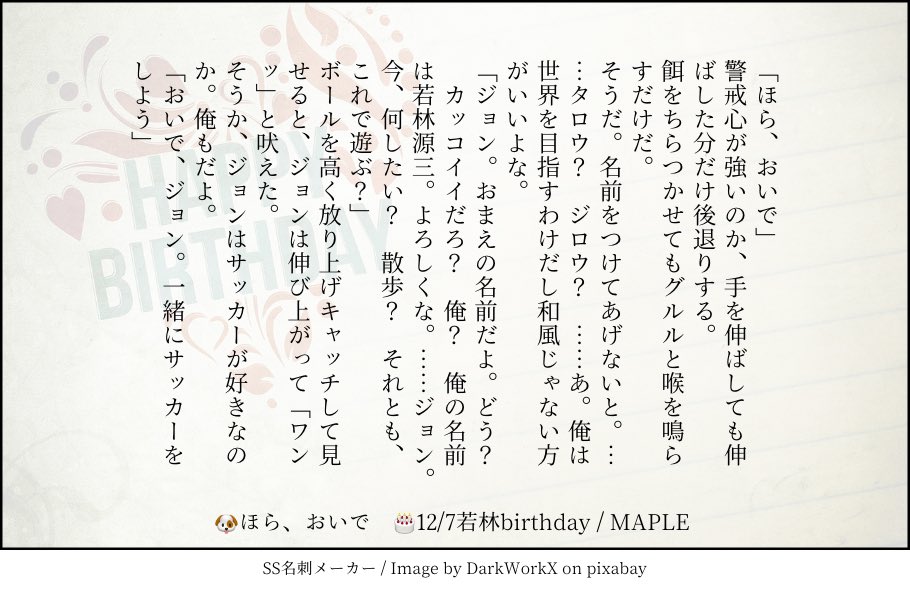 「ほら、おいで」
警戒心が強いのか、手を伸ばしても伸
ばした分だけ後退りする。
餌をちらつかせてもグルルと喉を鳴ら
すだけだ。
そうだ。名前をつけてあげないと。…
…タロウ？　ジロウ？　……あ。俺は
世界を目指すわけだし和風じゃない方
がいいよな。
「ジョン。おまえの名前だよ。どう？
　カッコイイだろ？　俺？　俺の名前
は若林源三。よろしくな。……ジョン。
今、何したい？　散歩？　それとも、
これで遊ぶ？」
ボールを高く放り上げキャッチして見
せると、ジョンは伸び上がって「ワン
ッ」と吠えた。
そうか、ジョンはサッカーが好きなの
か。俺もだよ。
「おいで、ジョン。一緒にサッカーを
しよう」
HAPPY
BIRTHDAY
🐶ほら、おいで　🎂12/7若林birthday / MAPLE
SS名刺メーカー / Image by DarkWorkX on pixabay